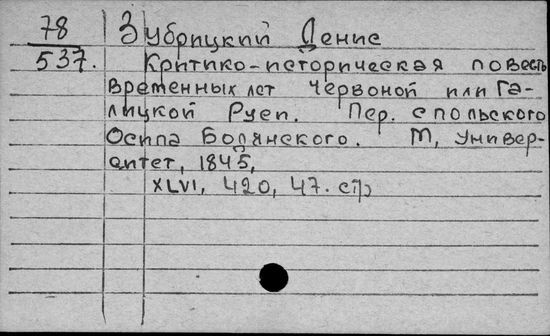 78 Зубрицкий Денис
537. Критико-историческая повесть
временных лет Червоной или Га-
лицкой Руси. Пер. с польского
Осипа Бодянского. М, Универ-
ситет, 1845,
XLVI, 420, 47. стр